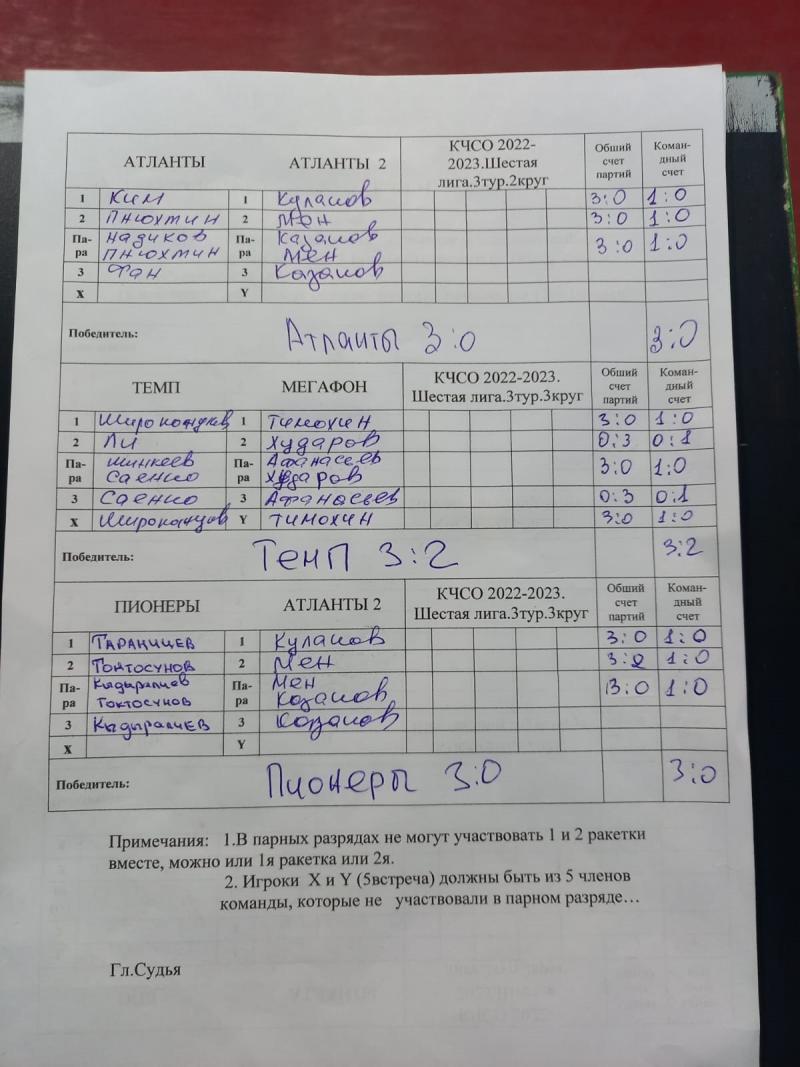 АТЛАНТЫ АТЛАНТЫ 2 КЧСО 2022-2023.Шестая лига.3тур.2круг Общий счет партий Коман-дный счет
1 Ким 1 Кулаков 3:0 1:0
2 Пнюхтин 2 Мен 3:0 1:0
Па-ра Надиков Па-ра Казаков 3:0 1:0
Пнюхтин Мен
3 Фан 3 Казаков
X Y
Победитель: Атланты 3:0 3:0
ТЕМП МЕГАФОН КЧСО 2022-2023. Шестая лига.3тур.3круг Общий счет партий Коман-дный счет
1 1 Тимохин 3:0 1:0
2 Ли 2 Хударов 0:3 0:1
Па-ра Шинкеев Па-ра Афанасьев 3:0 1:0
Саенко Хударов
3 Саенко 3 Афанасьев 0:3 0:1
X Y Тимохин 3:0 1:0
Победитель: Темп 3:2 3:2
ПИОНЕРЫ АТЛАНТЫ 2 КЧСО 2022-2023. Шестая лига.3тур.3круг Общий счет партий Коман-дный счет
1 1 Кулаков 3:0 1:0
2 Токтосунов 2 Мен 3:0 1:0
Па-ра Кыдыралиев Па-ра Мен 3:0 1:0
Токтосунов Козаков
3 Кыдыралиев 3 Козаков
X Y
Победитель: Пионеры 3:0 3:0
Примечания: 1.В парных разрядах не могут участвовать 1 и 2 ракетки
вместе, можно или 1я ракетка или 2я.
2. Игроки X и Y (5встреча) должны быть из 5 членов
команды, которые не участвовали в парном разряде…
Гл.Судья